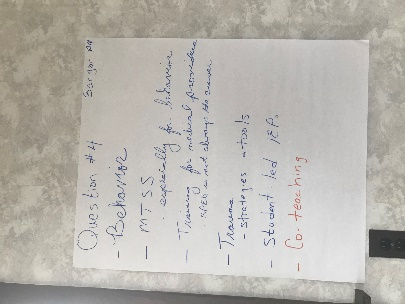 Question #4
- Behavior
- MTSS
- especially for behavior
- Training for medical providers
SPED is not always the answer
- Trauma
- strategies + tools
- Student led IEPs
- Co-teaching